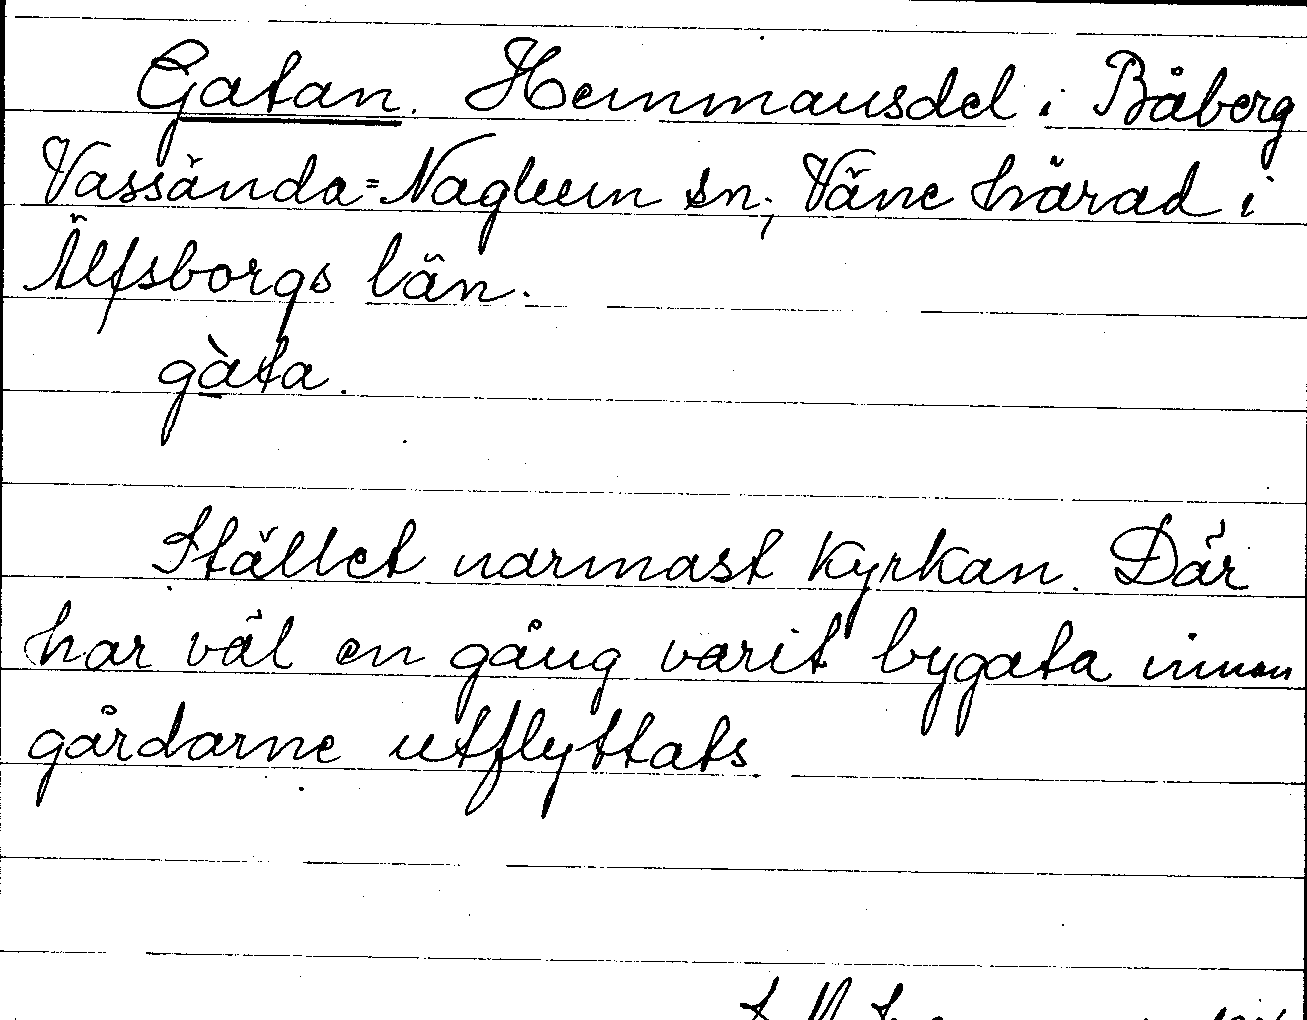 Gatan. Hemmansdel i Båberg
Vassända=Nagleum sn; Väne härad i
Älfsborgs län.
gàta.
Stället närmast kyrkan. Där
har väl en gång varit bygata innan
gårdarne utflyttats